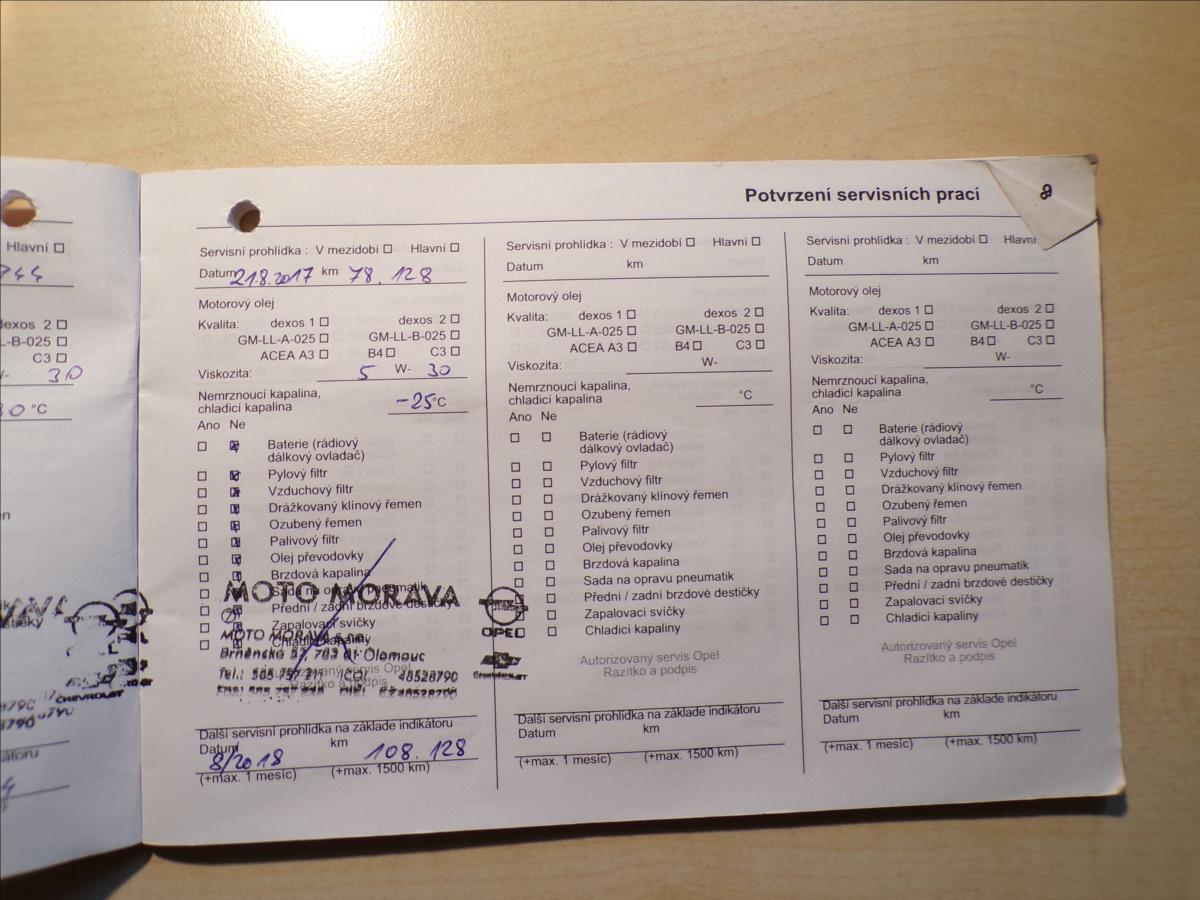 Hlavní
744
dexos 2
LL-B-025
C3
W- 30
°C
Potvrzení servisních prací
Servisní prohlídka : V mezidobí Hlavní
Datum 21.8.2017 km 78.128
Motorový olej
Kvalita: dexos 1 dexos 2
GM-LL-A-025 GM-LL-B-025
ACEA A3 B4 C3
Viskozita: 5 W- 30
Nemrznoucí kapalina,
chladicí kapalina -25°C
Ano Ne
Baterie (rádiový
dálkový ovladač)
Pylový filtr
Vzduchový filtr
Drážkovaný klínový řemen
Ozubený řemen
Palivový filtr
Olej převodovky
Brzdová kapalina
Sada na opravu pneumatik
MOTO MORAVA
Přední / zadní brzdové destičky
Zapalovací svíčky
Chladicí kapaliny
OPEL
MOTO MORAVA
Brněnská Olomouc
Tel.: 585 757 211 IČO: 48528790
Autorizovaný servis Opel
Razítko a podpis
CHEVROLET
Další servisní prohlídka na základe indikátoru
Datum km
8/2018 108.128
(+max. 1 mesíc) (+max. 1500 km)
Servisní prohlídka : V mezidobí Hlavní
Datum km
Motorový olej
Kvalita: dexos 1 dexos 2
GM-LL-A-025 GM-LL-B-025
ACEA A3 B4 C3
Viskozita: W-
Nemrznoucí kapalina,
chladicí kapalina °C
Ano Ne
Baterie (rádiový
dálkový ovladač)
Pylový filtr
Vzduchový filtr
Drážkovaný klínový řemen
Ozubený řemen
Palivový filtr
Olej převodovky
Brzdová kapalina
Sada na opravu pneumatik
Přední / zadní brzdové destičky
Zapalovací svíčky
Chladicí kapaliny
Autorizovaný servis Opel
Razítko a podpis
Další servisní prohlídka na základe indikátoru
Datum km
(+max. 1 mesíc) (+max. 1500 km)
Servisní prohlídka : V mezidobí Hlavní
Datum km
Motorový olej
Kvalita: dexos 1 dexos 2
GM-LL-A-025 GM-LL-B-025
ACEA A3 B4 C3
Viskozita: W-
Nemrznoucí kapalina,
chladicí kapalina °C
Ano Ne
Baterie (rádiový
dálkový ovladač)
Pylový filtr
Vzduchový filtr
Drážkovaný klínový řemen
Ozubený řemen
Palivový filtr
Olej převodovky
Brzdová kapalina
Sada na opravu pneumatik
Přední / zadní brzdové destičky
Zapalovací svíčky
Chladicí kapaliny
Autorizovaný servis Opel
Razítko a podpis
Další servisní prohlídka na základe indikátoru
Datum km
(+max. 1 mesíc) (+max. 1500 km)